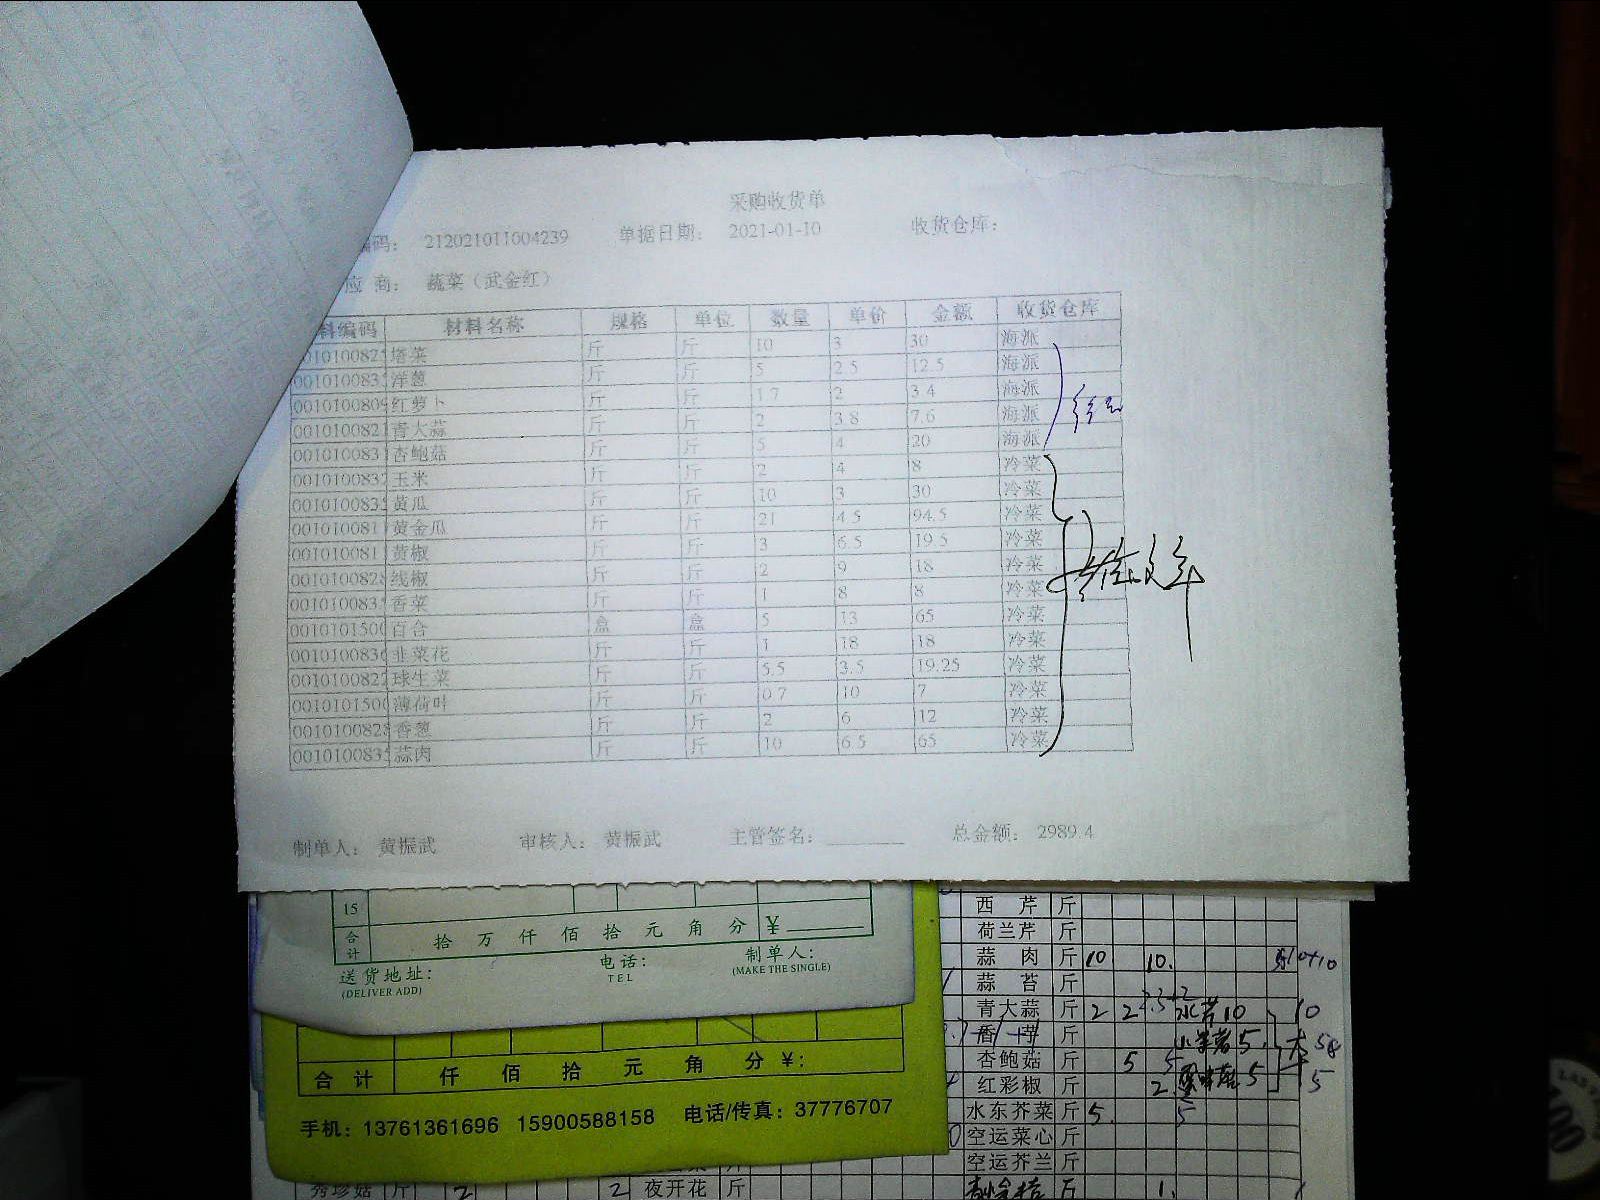 采购收货单
编码： 212021011004239 单据日期： 2021-01-10 收货仓库：
应 商： 蔬菜（武金红）
料编码 材料名称 规格 单位 数量 单价 金额 收货仓库
塔菜 斤 斤 10 3 30 海派
001010083 洋葱 斤 斤 5 2.5 12.5 海派
001010080 红萝卜 斤 斤 1.7 2 3.4 海派
001010082 青大蒜 斤 斤 2 3.8 7.6 海派
001010083 杏鲍菇 斤 斤 5 4 20 海派
001010083 玉米 斤 斤 2 4 8 冷菜
001010083 黄瓜 斤 斤 10 3 30 冷菜
001010081 黄金瓜 斤 斤 21 4.5 94.5 冷菜
001010081 黄椒 斤 斤 3 6.5 19.5 冷菜
001010082 线椒 斤 斤 2 9 18 冷菜
001010083 香菜 斤 斤 1 8 8 冷菜
001010150 百合 盒 盒 5 13 65 冷菜
001010083 韭菜花 斤 斤 1 18 18 冷菜
001010082 球生菜 斤 斤 5.5 3.5 19.25 冷菜
001010150 薄荷叶 斤 斤 0.7 10 7 冷菜
001010082 香葱 斤 斤 2 6 12 冷菜
001010083 蒜肉 斤 斤 10 6.5 65 冷菜
制单人： 黄振武 审核人： 黄振武 主管签名： 总金额： 2989.4
15
合计 拾 万 仟 佰 拾 元 角 分 ¥
送货地址： 电话： 制单人：
(DELIVER ADD) TEL (MAKE THE SINGLE)
合 计 仟 佰 拾 元 角 分 ¥：
手机：13761361696 15900588158 电话/传真：37776707
西 芹 斤
荷兰芹 斤
蒜 肉 斤 10 10.
蒜 苔 斤
青大蒜 斤 2 2 水芹10 10
香 芋 斤
杏鲍菇 斤 5 5
红彩椒 斤 2 5 5
水东芥菜 斤 5. 5
空运菜心 斤
空运芥兰 斤
秀珍菇 斤 2 2 夜开花 斤 斤 1.